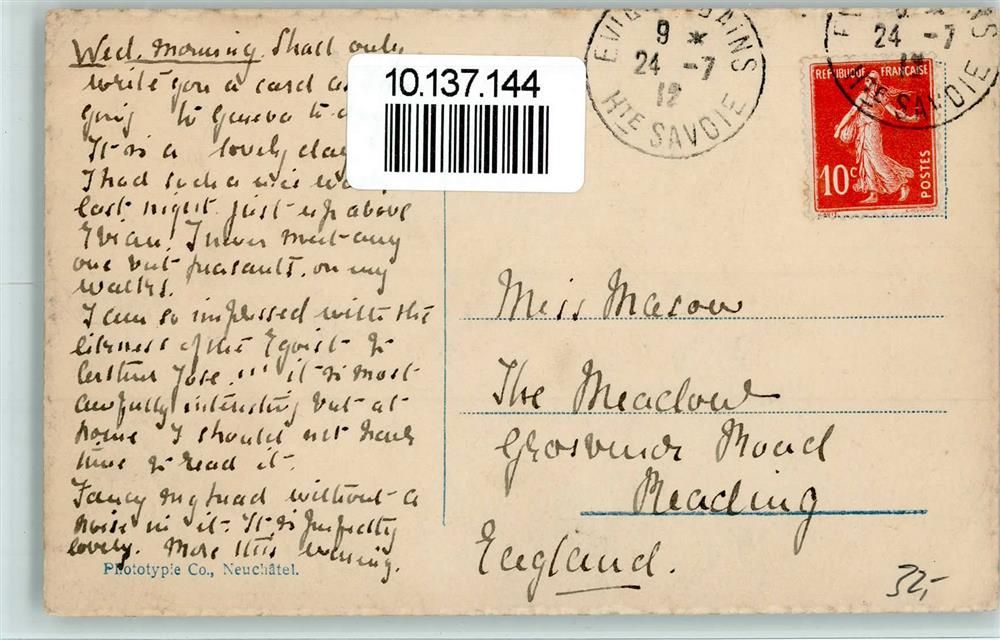 Wed. morning. Shall only
write you a card as
going to Geneva to
It is a lovely day
I had such a nice
last night just up above
Evian. I never meet any
one but peasants on my
walks.
I am so impressed with the
likeness of the Egoist to
it is most
awfully interesting but at
home I should not have
time to read it.
Fancy without a
noise in it. It is perfectly
lovely. More this evening.
Phototypie Co., Neuchâtel.
10.137.144
EVIAN BAINS
9 *
24 -7
12
HTE SAVOIE
24 -7
SAVOIE
REPUBLIQUE FRANÇAISE
10c
POSTES
Miss Mason
The Meadows
Grosvenor Road
Reading
England.
32,-